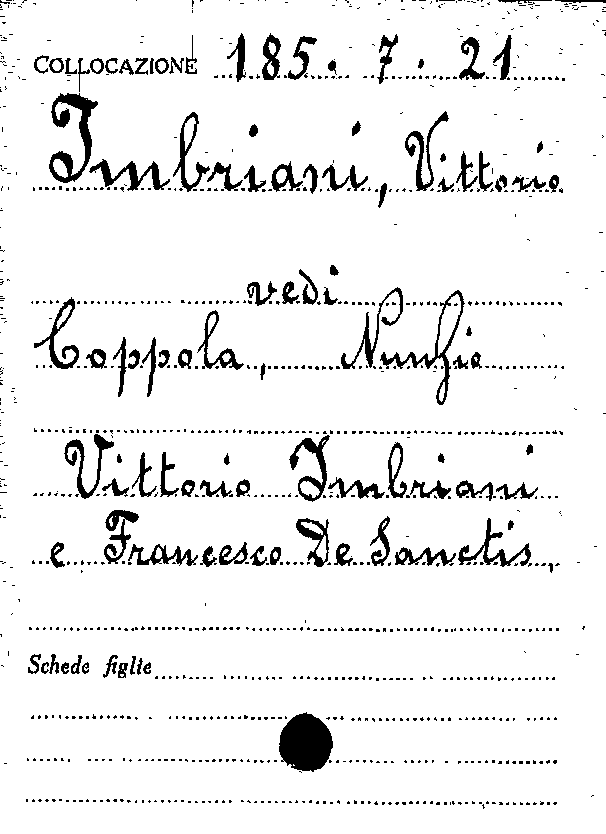 COLLOCAZIONE 185. 7. 21
Imbriani, Vittorio
vedi
Coppola, Nunzio
Vittorio Imbriani
e Francesco De Sanctis,
Schede figlie